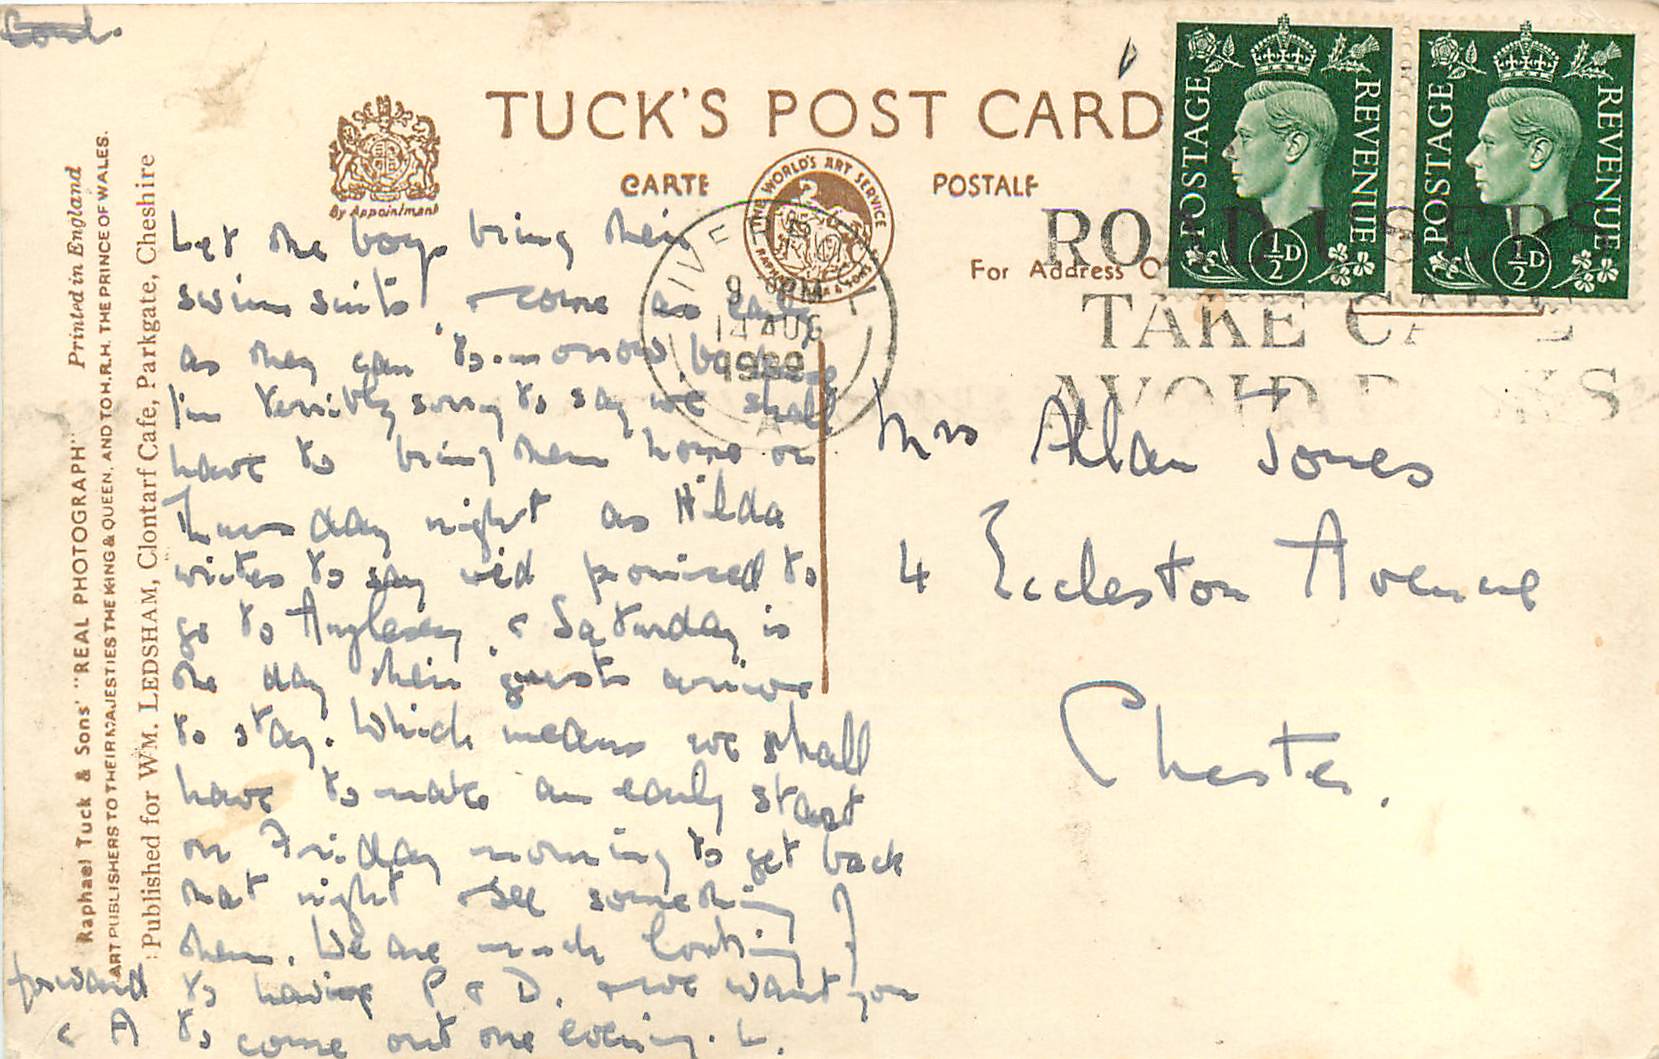 TUCK'S POST CARD
CARTE POSTALE
By Appointment
THE WORLD'S ART SERVICE
RAPHAEL TUCK & SONS
For Address O
POSTAGE REVENUE
½D
POSTAGE REVENUE
½D
9 PM
14 AUG
ROAD USERS
TAKE CARE
AVOID
Printed in England
Raphael Tuck & Sons' "REAL PHOTOGRAPH"
ART PUBLISHERS TO THEIR MAJESTIES THE KING & QUEEN, AND TO H.R.H. THE PRINCE OF WALES.
Published for WM. LEDSHAM, Clontarf Cafe, Parkgate, Cheshire
Let the boys bring their
swim suits, & come as early
as they can to-morrow because
I'm terribly sorry to say we shall
have to bring them home on
Thursday night as Hilda
writes to say we'd promised to
go to Anglesey & Saturday is
the day their guests arrive
to stay. Which means we shall
have to make an early start
on Friday morning to get back
that night & see something of
them. We are much looking
forward to having P & D. & we want you
& A to come out one evening. L.
Mrs Allan Jones
4 Eccleston Avenue
Chester.